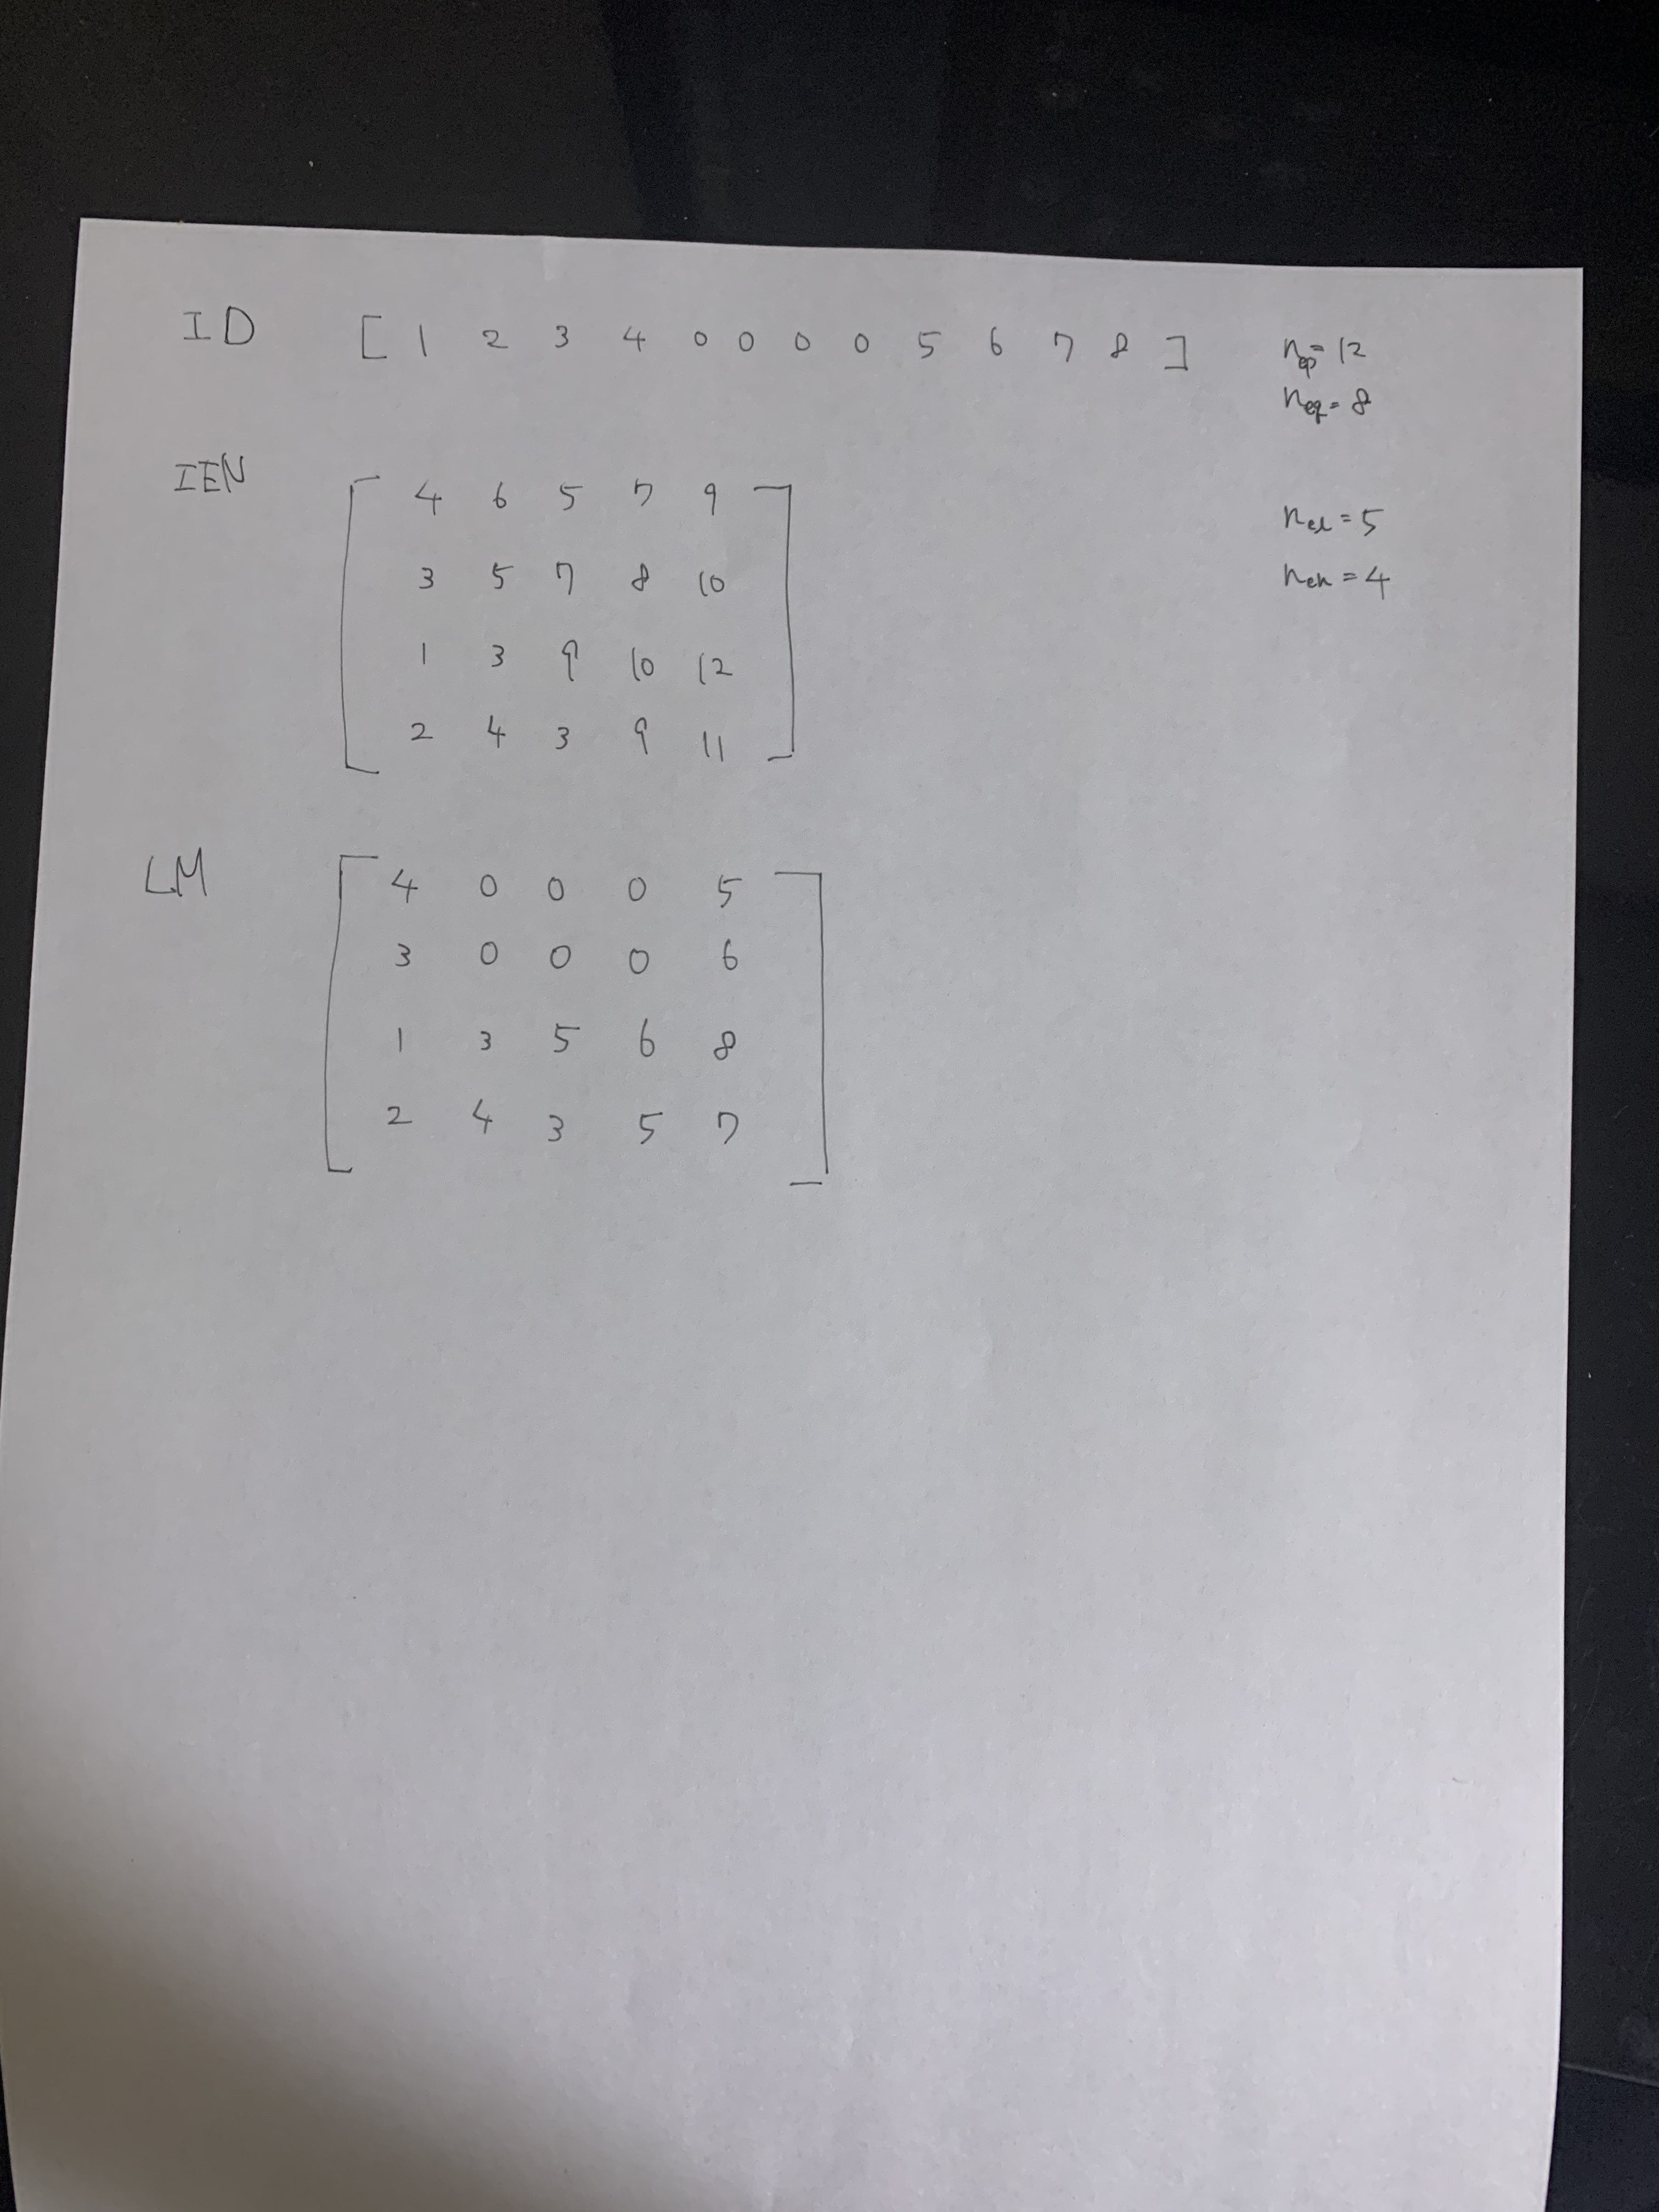 ID [ 1 2 3 4 0 0 0 0 5 6 7 8 ] nnp = 12
neq = 8
IEN [ 4 6 5 7 9
3 5 7 8 10
1 3 9 10 12
2 4 3 9 11 ]
nel = 5
nen = 4
LM [ 4 0 0 0 5
3 0 0 0 6
1 3 5 6 8
2 4 3 5 7 ]